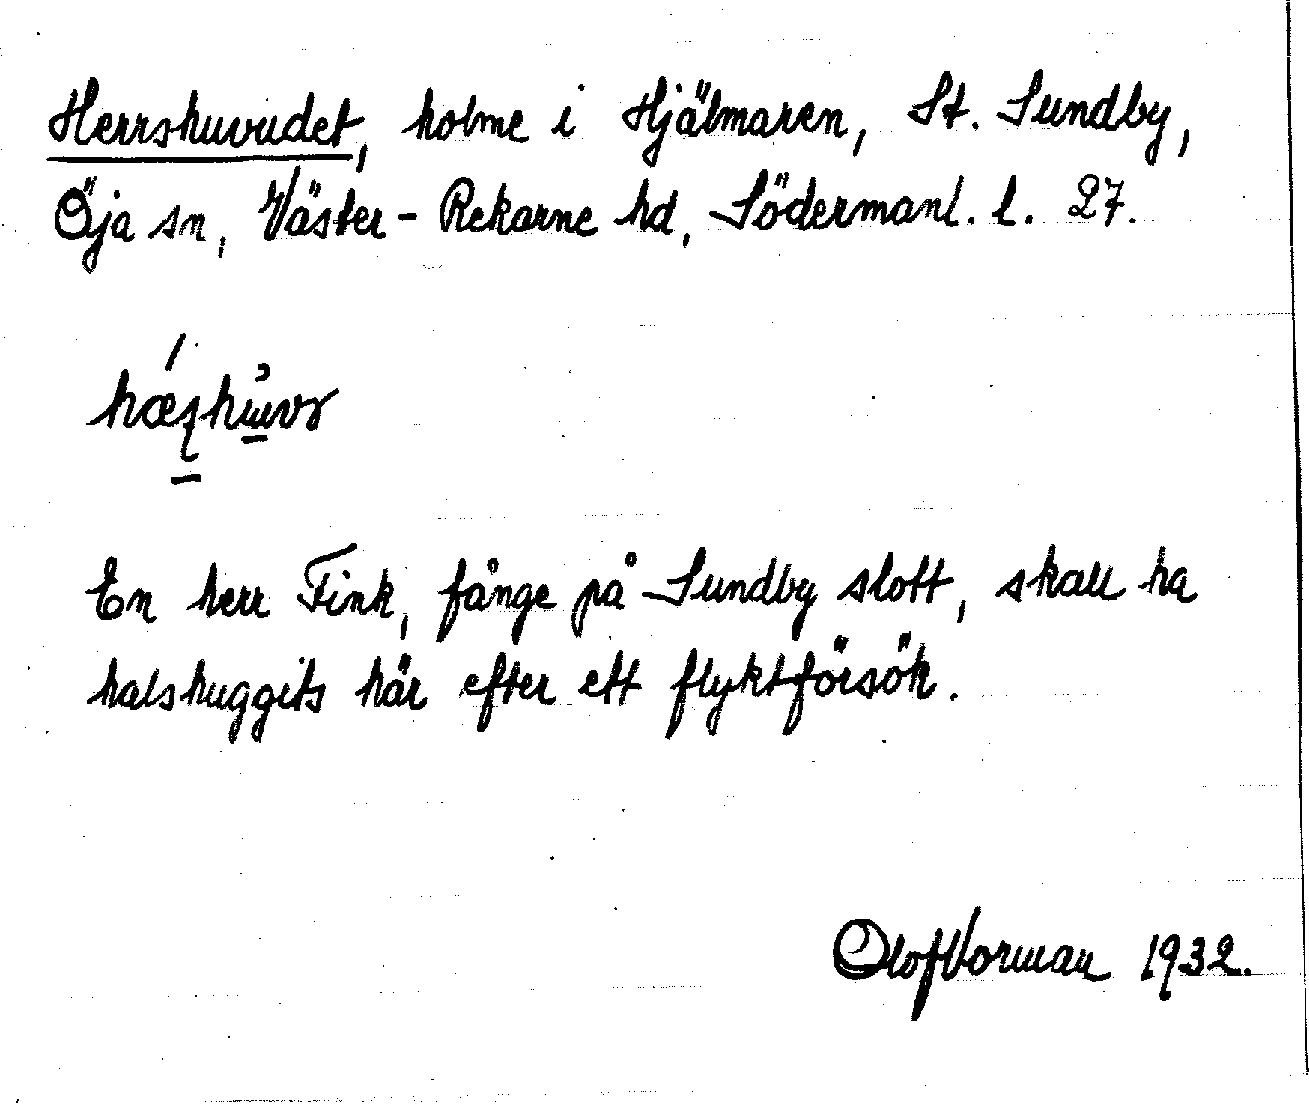 Herrshuvudet, holme i Hjälmaren, St. Sundby,
Öja sn, Väster-Rekarne hd, Södermanl. l. 27.
En herr Fink, fånge på Sundby slott, skall ha
halshuggits här efter ett flyktförsök.
Olof Vorman 1932.